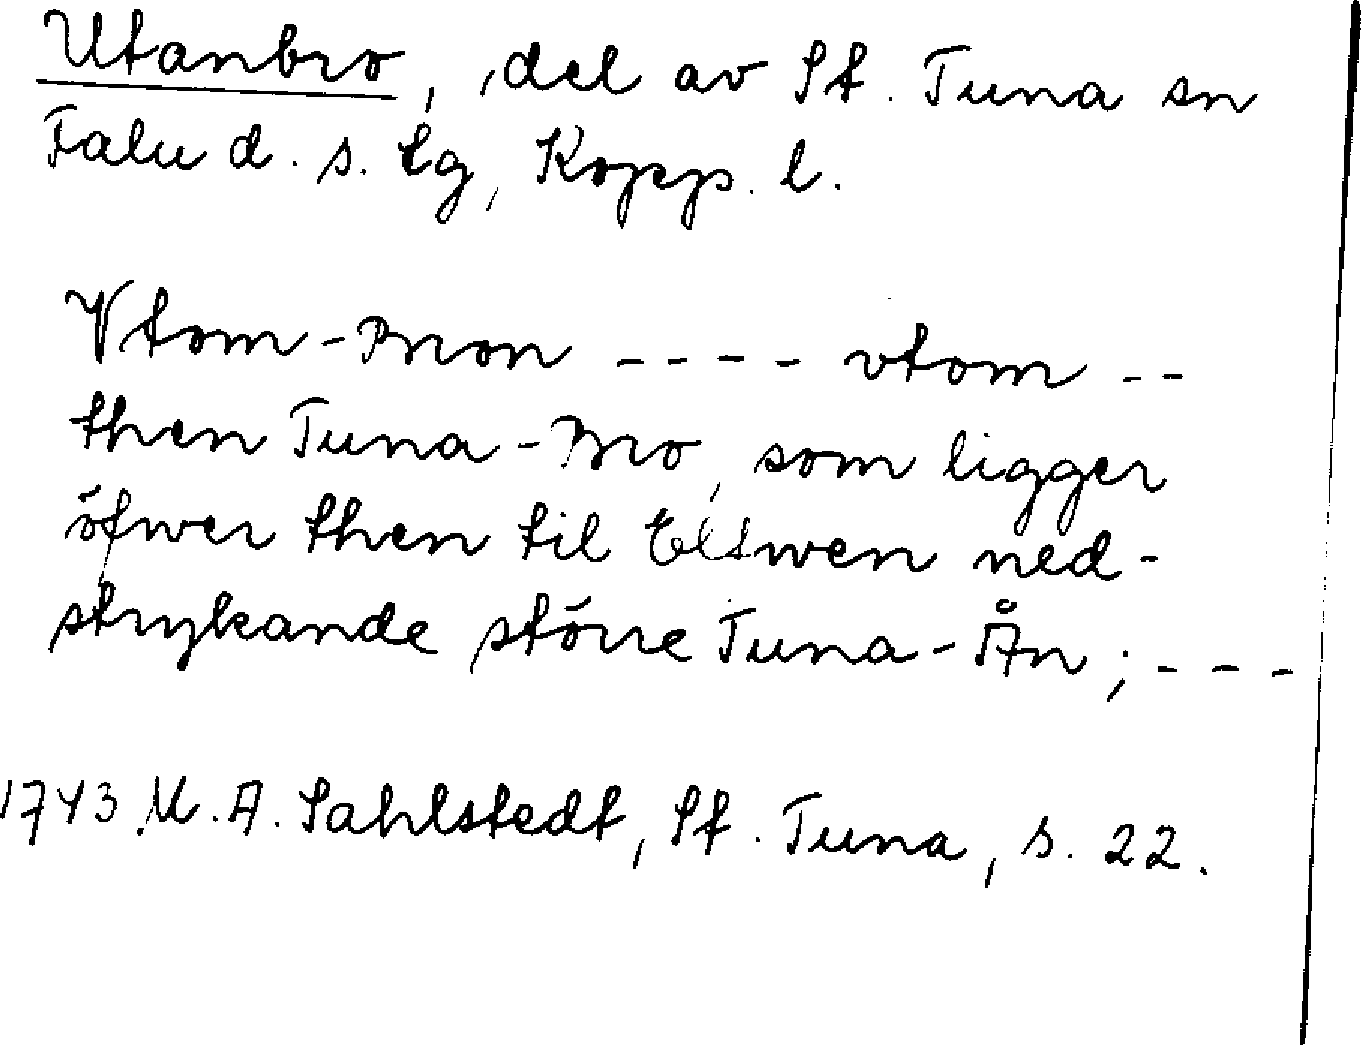 Utanbro, del av St. Tuna sn
Falu d. s. tg, Kopp. l.
Vtom-Bron ---- vtom --
then Tuna-Bro, som ligger
öfwer then til Elfwen ned-
strykande större Tuna-Ån; ---
1743 M. A. Sahlstedt, St. Tuna, s. 22.